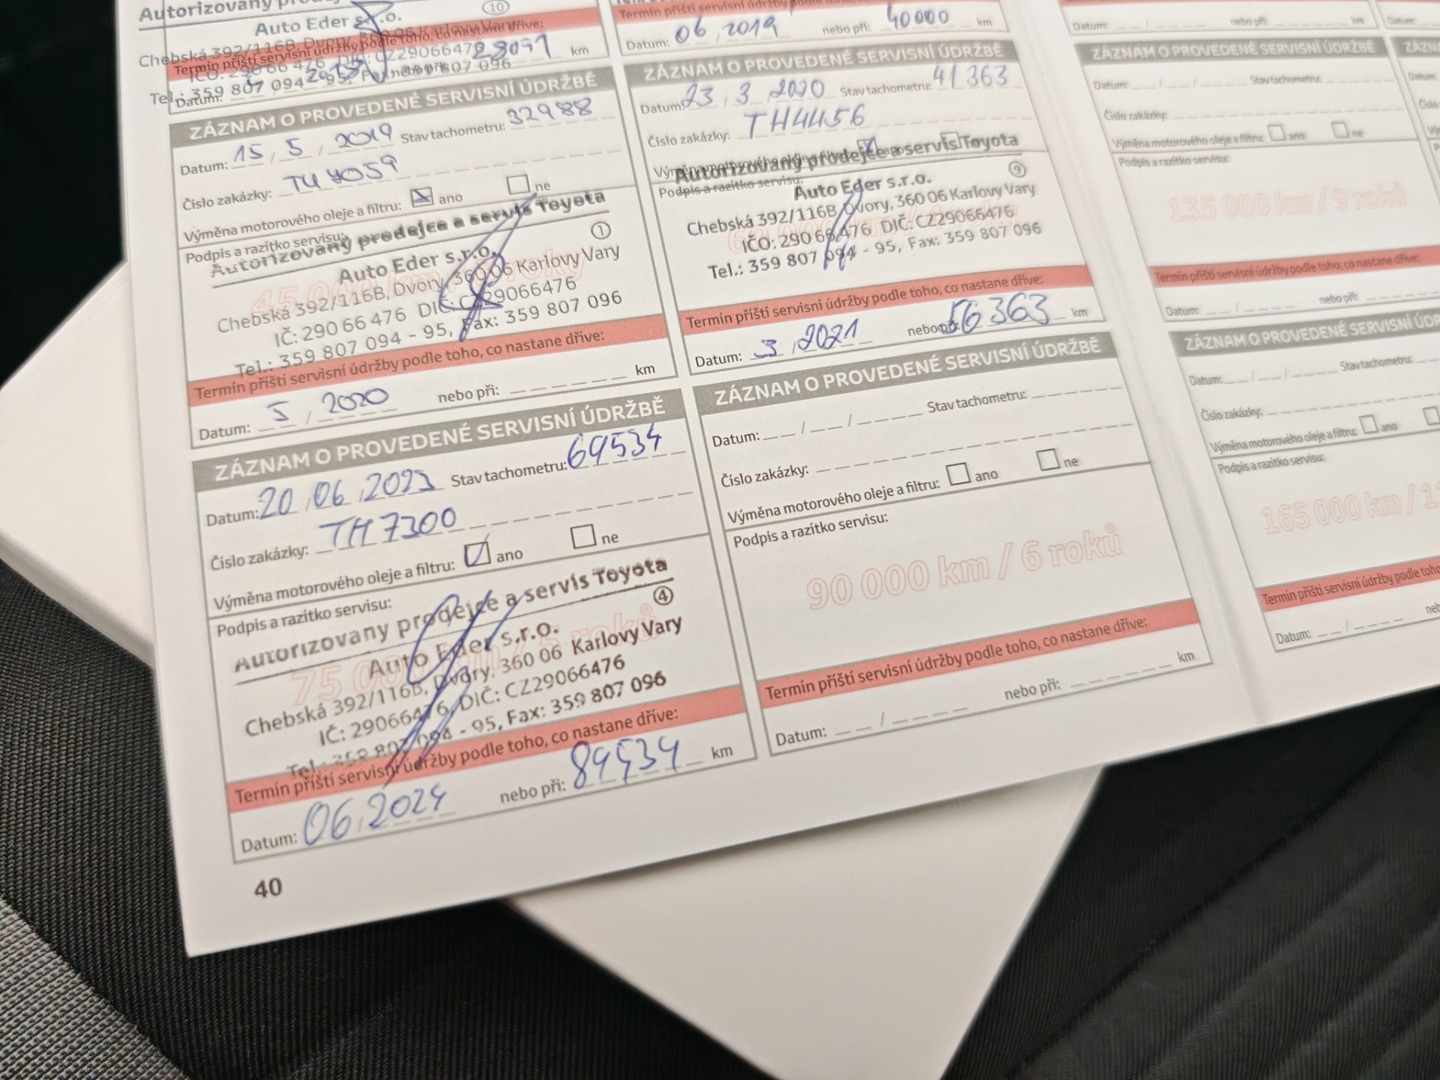 Autorizovaný prodej
Auto Eder s.r.o.
10
Chebská 392/116B, Dvory, 360 06 Karlovy Vary
Termín příští servisní údržby podle toho, co nastane dříve:
Tel.: 359 807 094 - 95, Fax: 359 807 096
Datum:
km
ZÁZNAM O PROVEDENÉ SERVISNÍ ÚDRŽBĚ
Datum: 15 / 5 / 2019 Stav tachometru: 32988
Číslo zakázky:
Výměna motorového oleje a filtru: ano ne
Podpis a razítko servisu:
Autorizovaný prodejce a servis Toyota
Auto Eder s.r.o.
1
Chebská 392/116B, Dvory, 360 06 Karlovy Vary
IČ: 290 66 476 DIČ: CZ29066476
Tel.: 359 807 094 - 95, Fax: 359 807 096
Termín příští servisní údržby podle toho, co nastane dříve:
Datum: 5 / 2020 nebo při: km
ZÁZNAM O PROVEDENÉ SERVISNÍ ÚDRŽBĚ
Datum: 20 / 06 / 2023 Stav tachometru: 69534
Číslo zakázky: TH7300
Výměna motorového oleje a filtru: ano ne
Podpis a razítko servisu:
75 000 km / 5 roků
Autorizovany prodejce a servis Toyota
Auto Eder s.r.o.
4
Chebská 392/116B, Dvory, 360 06 Karlovy Vary
IČ: 29066476, DIČ: CZ29066476
Tel.: 359 807 094 - 95, Fax: 359 807 096
Termín příští servisní údržby podle toho, co nastane dříve:
Datum: 06 / 2024 nebo při: 84534 km
40
Termín příští servisní údržby podle toho, co nastane dříve:
Datum: 06 / 2019 nebo při: 40000 km
ZÁZNAM O PROVEDENÉ SERVISNÍ ÚDRŽBĚ
Datum: 23 / 3 / 2020 Stav tachometru: 41363
Číslo zakázky: TH4456
Výměna motorového oleje a filtru:
Podpis a razítko servisu:
Autorizovaný prodejce a servis Toyota
Auto Eder s.r.o.
9
Chebská 392/116B, Dvory, 360 06 Karlovy Vary
IČO: 290 66 476 DIČ: CZ29066476
Tel.: 359 807 094 - 95, Fax: 359 807 096
Termín příští servisní údržby podle toho, co nastane dříve:
Datum: 3 / 2021 nebo při: 56363 km
ZÁZNAM O PROVEDENÉ SERVISNÍ ÚDRŽBĚ
Datum: / / Stav tachometru:
Číslo zakázky:
Výměna motorového oleje a filtru: ano ne
Podpis a razítko servisu:
90 000 km / 6 roků
Termín příští servisní údržby podle toho, co nastane dříve:
Datum: / nebo při: km
Datum: / nebo při: km
ZÁZNAM O PROVEDENÉ SERVISNÍ ÚDRŽBĚ
Datum: / / Stav tachometru:
Číslo zakázky:
Výměna motorového oleje a filtru: ano ne
Podpis a razítko servisu:
135 000 km / 9 roků
Termín příští servisní údržby podle toho, co nastane dříve:
Datum: / nebo při: km
ZÁZNAM O PROVEDENÉ SERVISNÍ ÚDRŽBĚ
Datum: / / Stav tachometru:
Číslo zakázky:
Výměna motorového oleje a filtru: ano
Podpis a razítko servisu:
165 000 km / 11
Termín příští servisní údržby podle toho
Datum: /